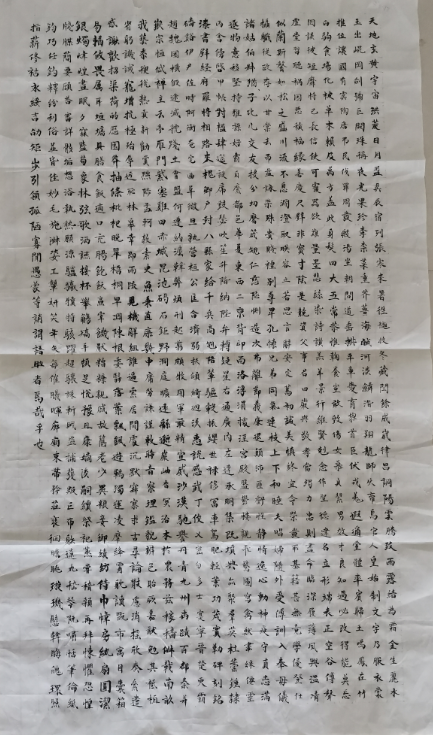 天地玄黄宇宙洪荒日月盈昃辰宿列張寒來暑往秋收冬藏閏餘成歲律呂調陽雲騰致雨露結為霜金生麗水
玉出崑岡劍號巨闕珠稱夜光果珍李柰菜重芥薑海鹹河淡鱗潛羽翔龍師火帝鳥官人皇始制文字乃服衣裳
推位讓國有虞陶唐弔民伐罪周發殷湯坐朝問道垂拱平章愛育黎首臣伏戎羌遐邇壹體率賓歸王鳴鳳在竹
白駒食場化被草木賴及萬方蓋此身髮四大五常恭惟鞠養豈敢毀傷女慕貞潔男效才良知過必改得能莫忘
罔談彼短靡恃己長信使可覆器欲難量墨悲絲染詩讚羔羊景行維賢克念作聖德建名立形端表正空谷傳聲
虛堂習聽禍因惡積福緣善慶尺璧非寶寸陰是競資父事君曰嚴與敬孝當竭力忠則盡命臨深履薄夙興溫凊
似蘭斯馨如松之盛川流不息淵澄取映容止若思言辭安定篤初誠美慎終宜令榮業所基籍甚無竟學優登仕
攝職從政存以甘棠去而益詠樂殊貴賤禮別尊卑孔懷兄弟同氣連枝上和下睦夫唱婦隨外受傅訓入奉母儀
諸姑伯叔猶子比兒交友投分切磨箴規仁慈隱惻造次弗離節義廉退顛沛匪虧性靜情逸心動神疲守真志滿
逐物意移堅持雅操好爵自縻都邑華夏東西二京背邙面洛浮渭據涇宮殿盤鬱樓觀飛驚圖寫禽獸畫彩仙靈
丙舍傍啟甲帳對楹肆筵設席鼓瑟吹笙陞階納陛弁轉疑星右通廣內左達承明既集墳典亦聚群英杜稿鍾隸
漆書壁經府羅將相路俠槐卿戶封八縣家給千兵高冠陪輦驅轂振纓世祿侈富車駕肥輕策功茂實勒碑刻銘
磻溪伊尹佐時阿衡奄宅曲阜微旦孰營桓公匡合濟弱扶傾綺迴漢惠說感武丁俊乂密勿多士寔寧晉楚更霸
趙魏困橫假途滅虢踐土會盟何遵約法韓弊煩刑起翦頗牧用軍最精宣威沙漠馳譽丹青九州禹跡百郡秦并
嶽宗恆岱禪主云亭雁門紫塞雞田赤城昆池碣石鉅野洞庭曠遠綿邈巖岫杳冥治本於農務茲稼穡俶載南畝
我藝黍稷稅熟貢新勸賞黜陟孟軻敦素史魚秉直庶幾中庸勞謙謹敕聆音察理鑑貌辨色貽厥嘉猷勉其祗植
省躬譏誡寵增抗極殆辱近恥林皋幸即兩疏見機解組誰逼索居閒處沉默寂寥求古尋論散慮逍遙欣奏累遣
慼謝歡招渠荷的歷園莽抽條枇杷晚翠梧桐早凋陳根委翳落葉飄颻遊鵾獨運凌摩絳霄耽讀玩市寓目囊箱
易輶攸畏屬耳垣牆具膳餐飯適口充腸飽飫烹宰飢厭糟糠親戚故舊老少異糧妾御績紡侍巾帷房紈扇圓潔
銀燭煒煌晝眠夕寐藍筍象床絃歌酒讌接杯舉觴矯手頓足悅豫且康嫡後嗣續祭祀烝嘗稽顙再拜悚懼恐惶
牋牒簡要顧答審詳骸垢想浴執熱願涼驢騾犢特駭躍超驤誅斬賊盜捕獲叛亡布射僚丸嵇琴阮嘯恬筆倫紙
鈞巧任釣釋紛利俗並皆佳妙毛施淑姿工顰妍笑年矢每催曦暉朗曜束帶矜莊徘徊瞻眺璇璣懸斡晦魄環照
指薪修祜永綏吉劭矩步引領孤陋寡聞愚蒙等誚謂語助者焉哉乎也